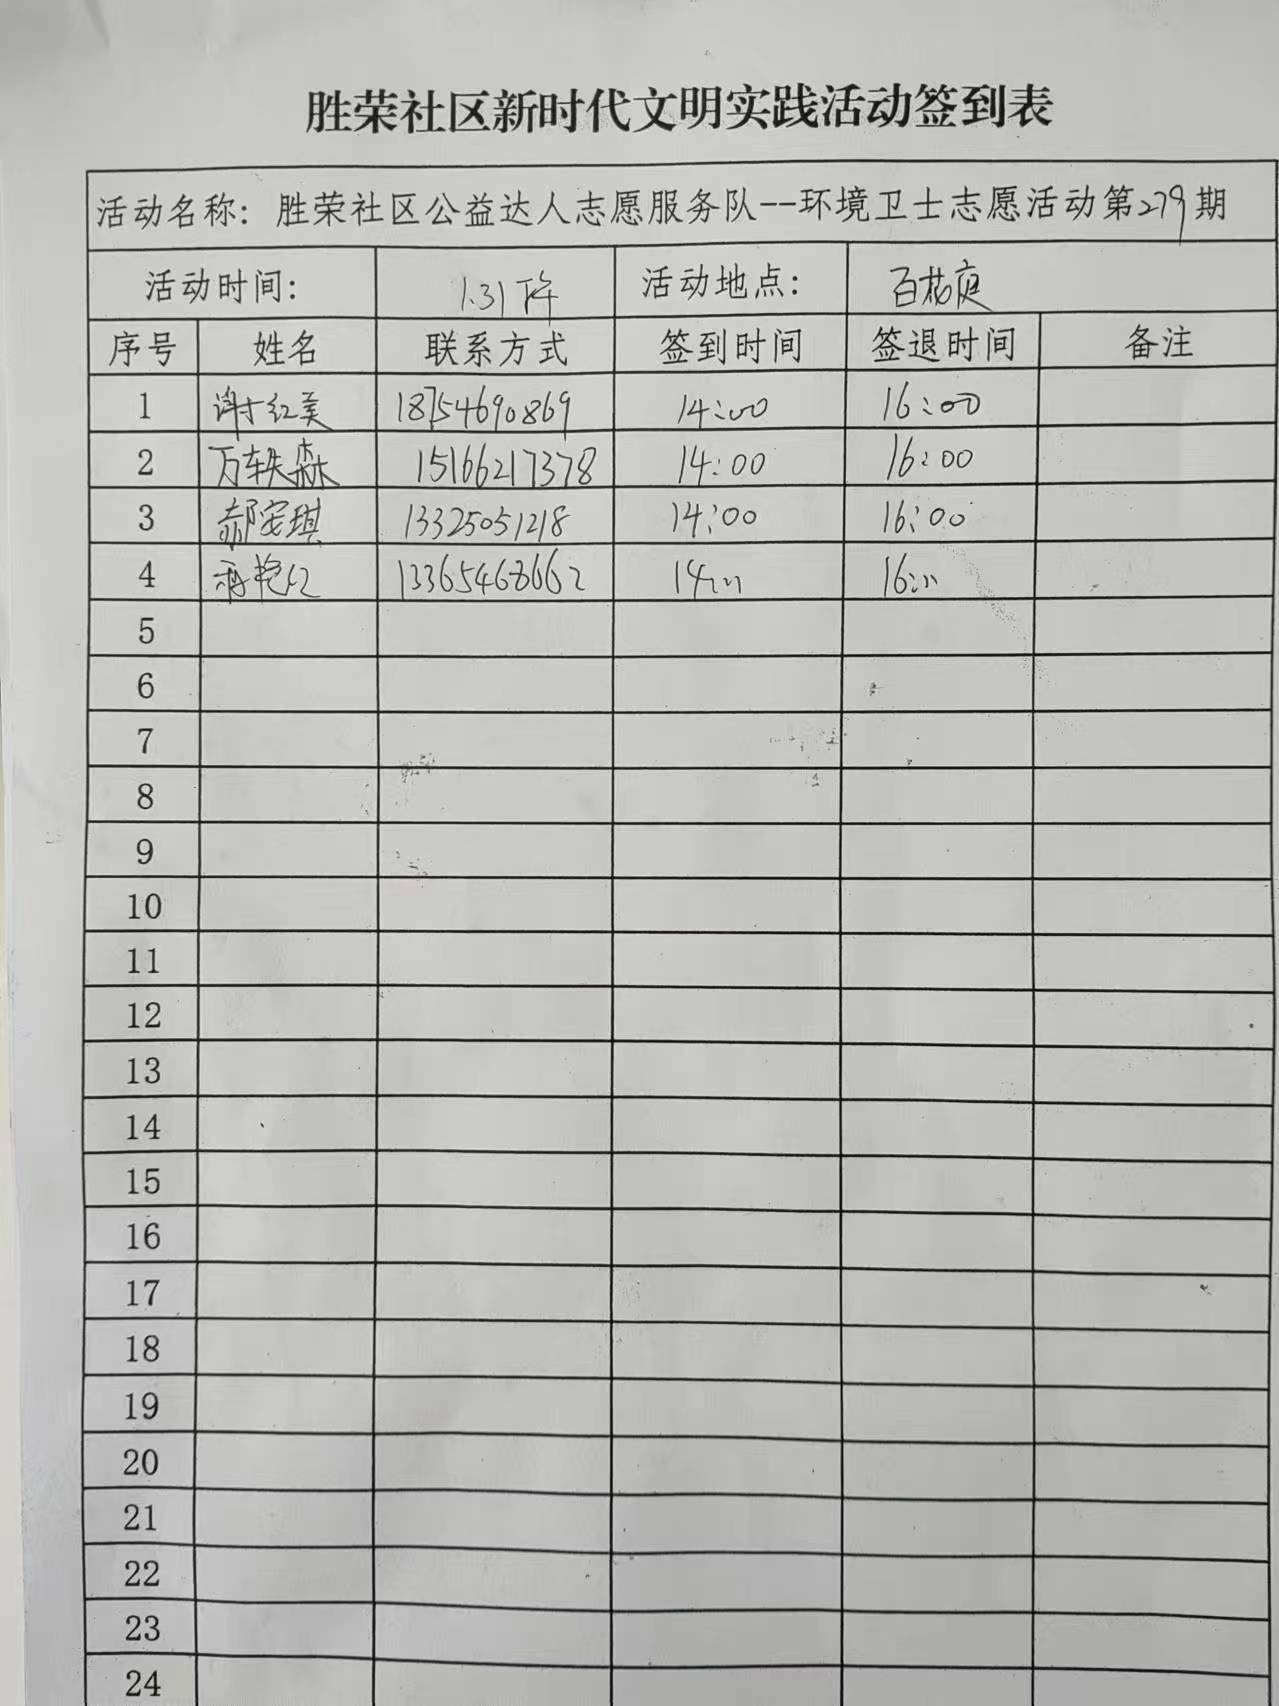 胜荣社区新时代文明实践活动签到表
活动名称：胜荣社区公益达人志愿服务队--环境卫士志愿活动第279期
活动时间： 1.31下午 活动地点： 百花庭
序号 姓名 联系方式 签到时间 签退时间 备注
1 谢红美 18754690869 14:00 16:00
2 万轶森 15166217378 14:00 16:00
3 郝安琪 13325051218 14:00 16:00
4 13365468662
5
6
7
8
9
10
11
12
13
14
15
16
17
18
19
20
21
22
23
24